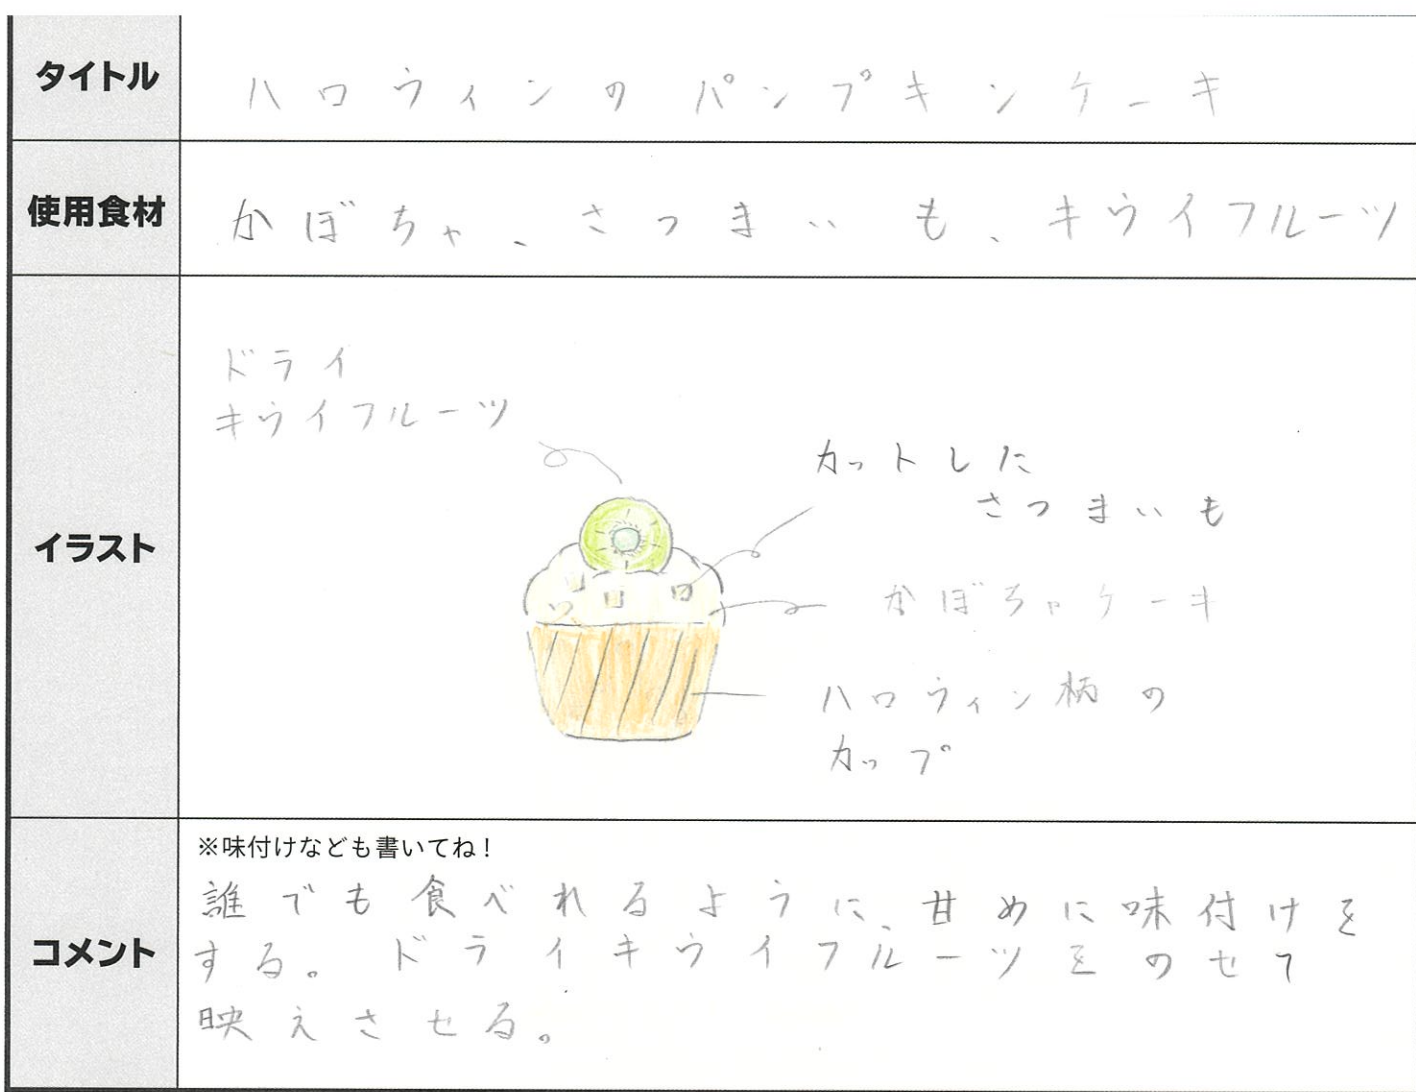 タイトル
ハロウィンのパンプキンケーキ
使用食材
かぼちゃ、さつまいも、キウイフルーツ
イラスト
ドライ
キウイフルーツ
カットした
さつまいも
かぼちゃケーキ
ハロウィン柄の
カップ
コメント
※味付けなども書いてね！
誰でも食べれるように、甘めに味付けを
する。ドライキウイフルーツをのせて
映えさせる。